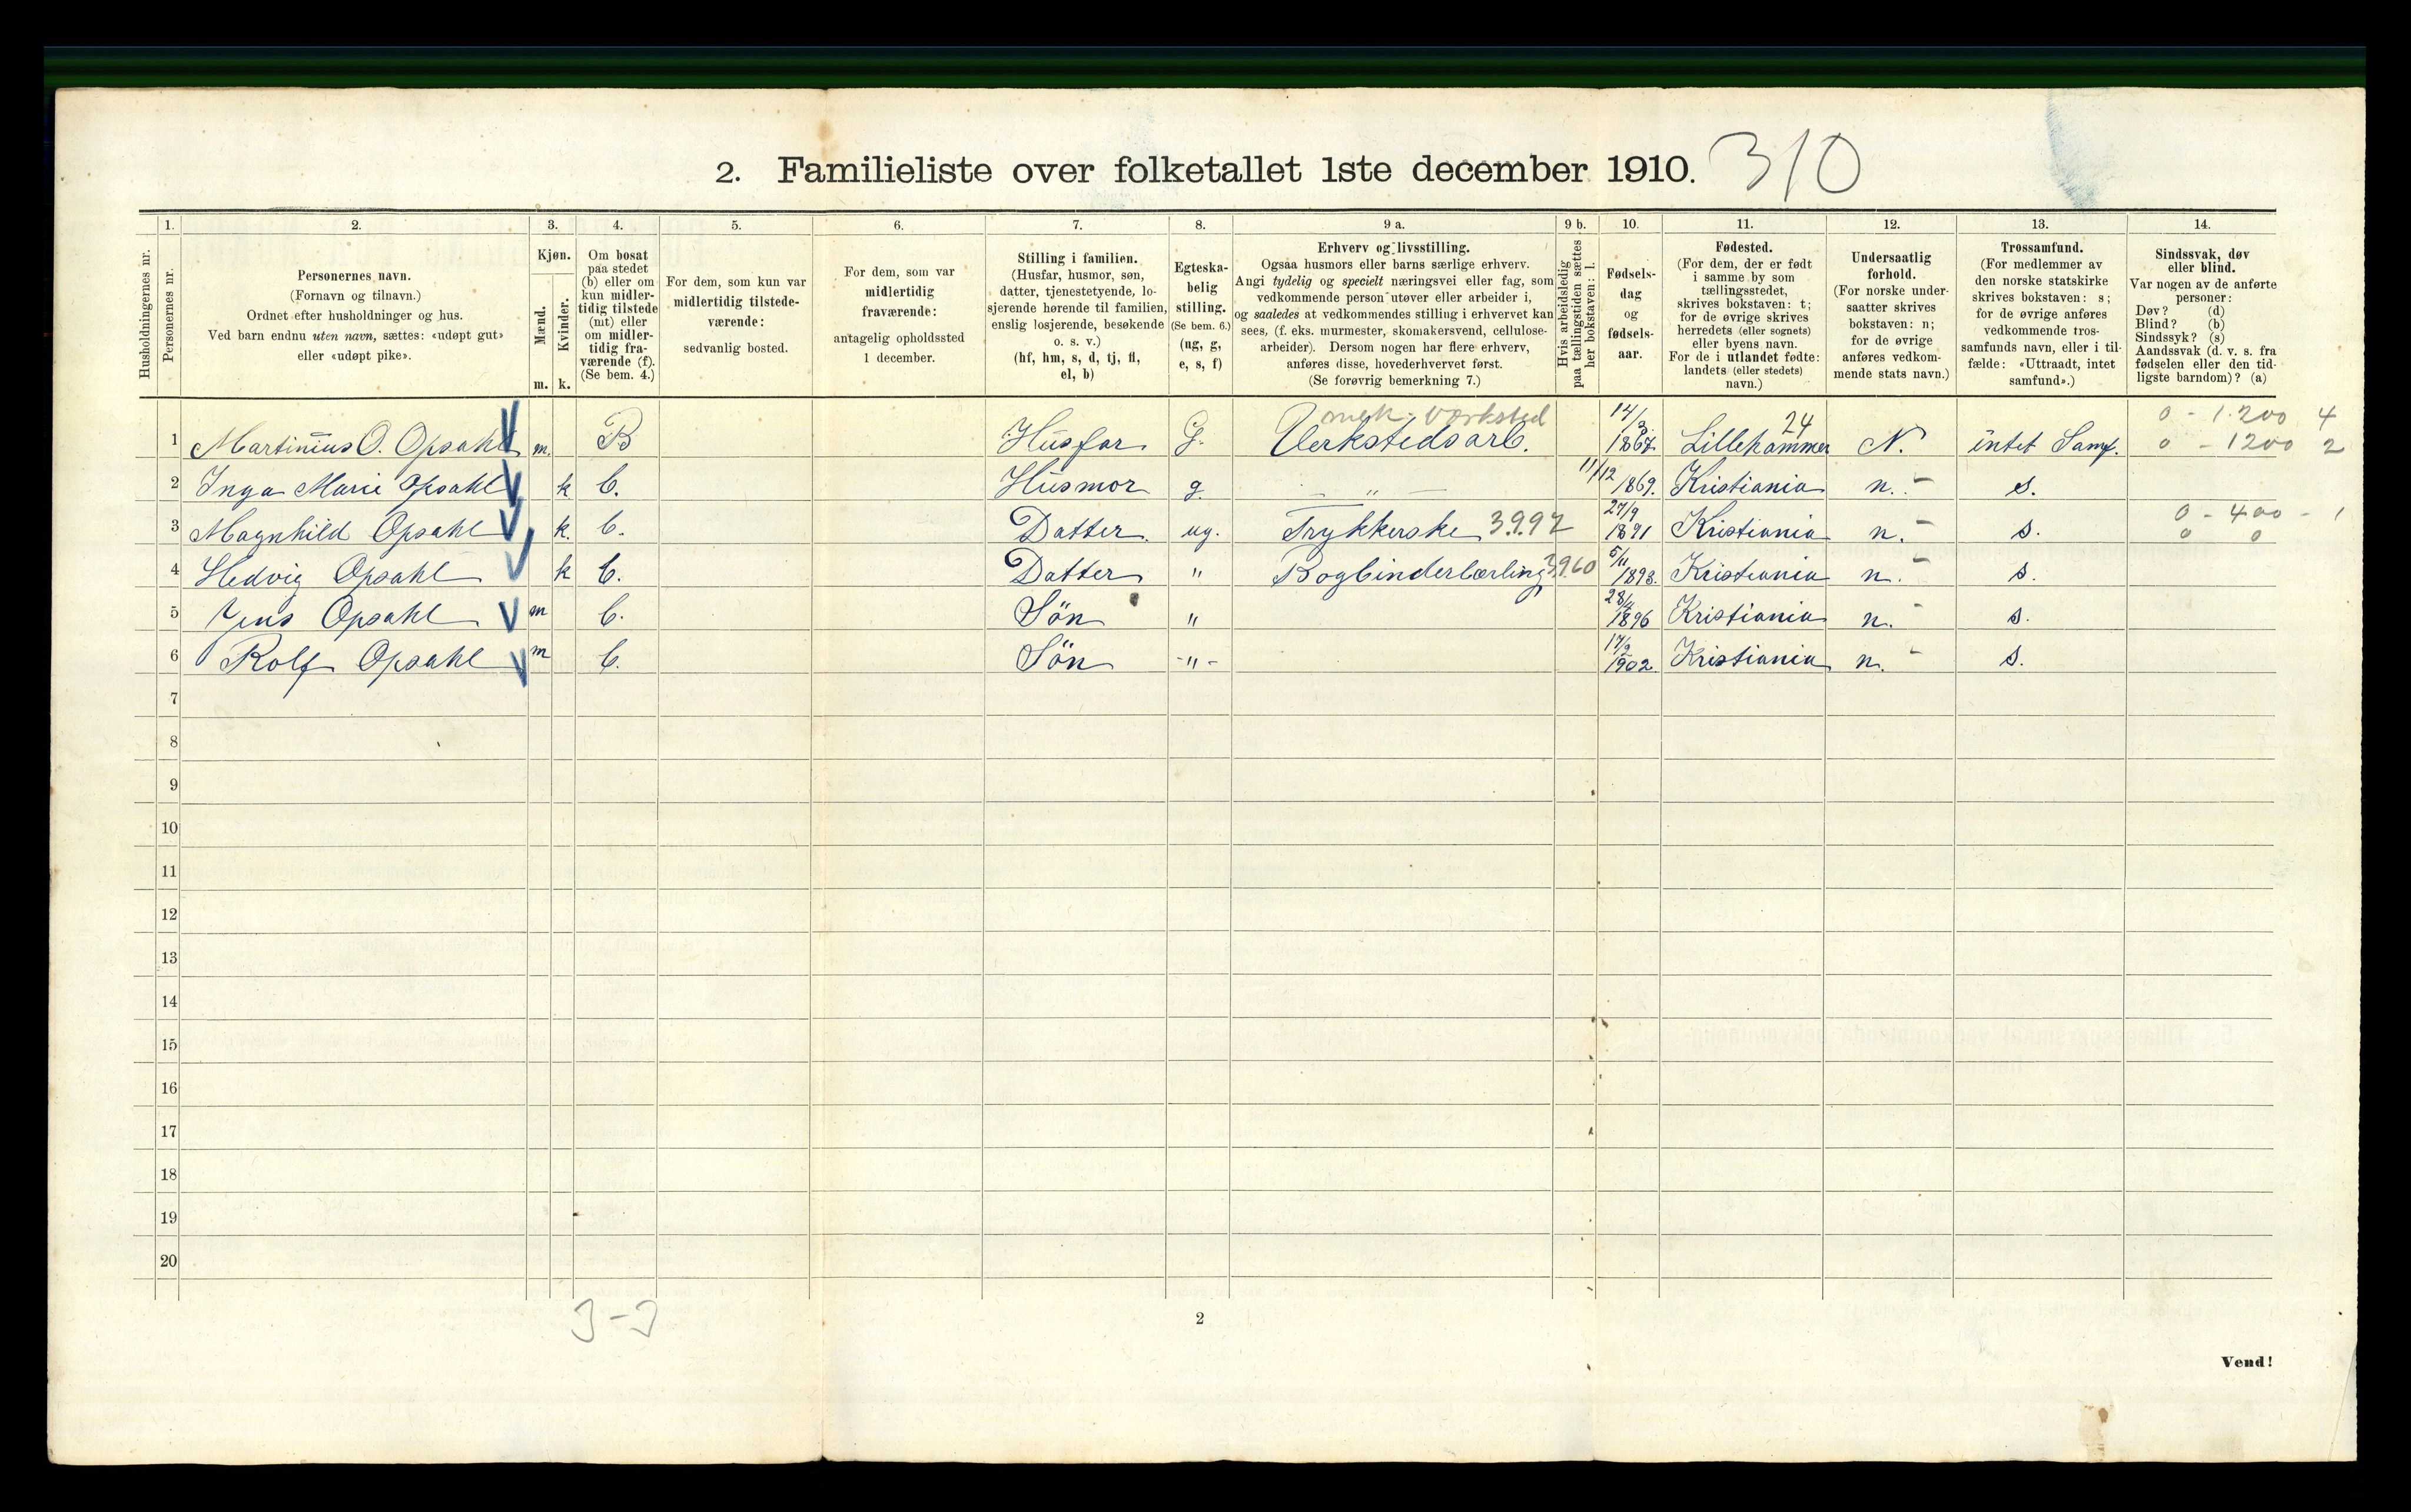 2. Familieliste over folketallet 1ste december 1910. 310
1. 2. 3. 4. 5. 6. 7. 8. 9 a. 9 b. 10. 11. 12. 13. 14.
Husholdningernes nr.
Personernes nr.
Personernes navn.
(Fornavn og tilnavn.)
Ordnet efter husholdninger og hus.
Ved barn endnu uten navn, sættes: «udøpt gut»
eller «udøpt pike».
Kjøn.
Mænd.
Kvinder.
m. k.
Om bosat
paa stedet
(b) eller om
kun midler-
tidig tilstede
(mt) eller
om midler-
tidig fra-
værende (f).
(Se bem. 4.)
For dem, som kun var
midlertidig tilstede-
værende:
sedvanlig bosted.
For dem, som var
midlertidig
fraværende:
antagelig opholdssted
1 december.
Stilling i familien.
(Husfar, husmor, søn,
datter, tjenestetyende, lo-
sjerende hørende til familien,
enslig losjerende, besøkende
o. s. v.)
(hf, hm, s, d, tj, fl,
el, b)
Egteska-
belig
stilling.
(Se bem. 6.)
(ug, g,
e, s, f)
Erhverv og livsstilling.
Ogsaa husmors eller barns særlige erhverv.
Angi tydelig og specielt næringsvei eller fag, som
vedkommende person utøver eller arbeider i,
og saaledes at vedkommendes stilling i erhvervet kan
sees, (f. eks. murmester, skomakersvend, cellulose-
arbeider). Dersom nogen har flere erhverv,
anføres disse, hovederhvervet først.
(Se forøvrig bemerkning 7.)
Hvis arbeidsledig
paa tællingstiden sættes
her bokstaven: l.
Fødsels-
dag
og
fødsels-
aar.
Fødested.
(For dem, der er født
i samme by som
tællingsstedet,
skrives bokstaven: t;
for de øvrige skrives
herredets (eller sognets)
eller byens navn.
For de i utlandet fødte:
landets (eller stedets)
navn.)
Undersaatlig
forhold.
(For norske under-
saatter skrives
bokstaven: n;
for de øvrige
anføres vedkom-
mende stats navn.)
Trossamfund.
(For medlemmer av
den norske statskirke
skrives bokstaven: s;
for de øvrige anføres
vedkommende tros-
samfunds navn, eller i til-
fælde: «Uttraadt, intet
samfund».)
Sindssvak, døv
eller blind.
Var nogen av de anførte
personer:
Døv? (d)
Blind? (b)
Sindssyk? (s)
Aandssvak (d. v. s. fra
fødselen eller den tid-
ligste barndom)? (a)
mek. Værksted 14/3 24 0 - 1.200 4
1 Martinius O. Opsahl m. B Husfar G. Verkstedsarb. 1867 Lillehammer N. intet Samf. 0 - 1200 2
2 Inga Marie Opsahl k b. Husmor g. — " — 11/12 1869. Kristiania n. s.
27/9 0 - 400 - 1
3 Magnhild Opsahl k. b. Datter. ug. Trykkerske 3.9.97 1891 Kristiania n. s. 0 0
4 Hedvig Opsahl k b. Datter " Bogbinderlærling 3960 5/11 1893. Kristiania n. s.
5 Jens Opsahl m b. Sön " 28/4 1896 Kristiania n. s.
6 Rolf Opsahl m b. Sön -"- 17/2 1902 Kristiania n. s.
7
8
9
10
11
12
13
14
15
16
17
18
19
20
3-3
2
Vend!